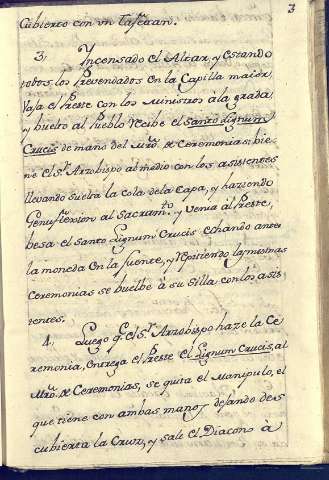 3
Cubierto con vn Tafetan.
3. Yncensado el Altar, y estando
todos los Prevendados en la Capilla maior,
vaja el Preste con los Ministros à la grada
y buelto al Pueblo recibe el santo Lignum
Crucis de mano del Mro. de Ceremonias: bie-
ne el Sr. Arzobispo al medio con los asistentes
llevando suelta la cola dela Capa, y haziendo
Genuflexion al Sacramto. y venia al Preste,
besa el santo Lignum Crucis echando antes
la moneda en la fuente, y repitiendo las mismas
Ceremonias se buelbe à su silla con los asis-
tentes.
4. Luego qe. el Sr. Arzobispo haze la Ce
remonia, entrega el Preste el Lignum Crucis, al
Mro. de Ceremonias, se quita el Manipulo, el
que tiene con ambas manos dejando des-
cubierta la Cruz, y sale el Diacono à